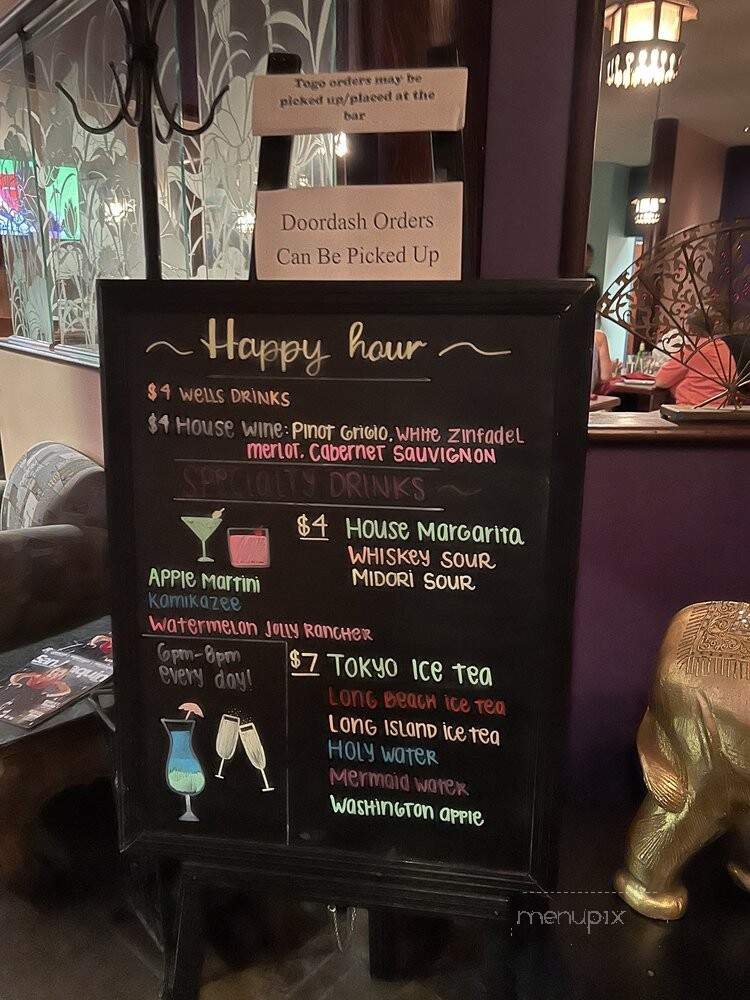 Togo orders may be
picked up/placed at the
bar
Doordash Orders
Can Be Picked Up
Happy hour
$4 WELLS DRINKS
$4 HOUSE WINE: PINOT GRIGIO, WHITE ZINFADEL
MERLOT, CABERNET SAUVIGNON
SPECIALTY DRINKS
$4 HOUSE MARGARITA
WHISKEY SOUR
MIDORI SOUR
APPLE MARTINI
KAMIKAZEE
WATERMELON JOLLY RANCHER
6pm-8pm
every day!
$7 TOKYO ICE TEA
LONG BEACH ICE TEA
LONG ISLAND ICE TEA
HOLY WATER
MERMAID WATER
WASHINGTON APPLE
menupix